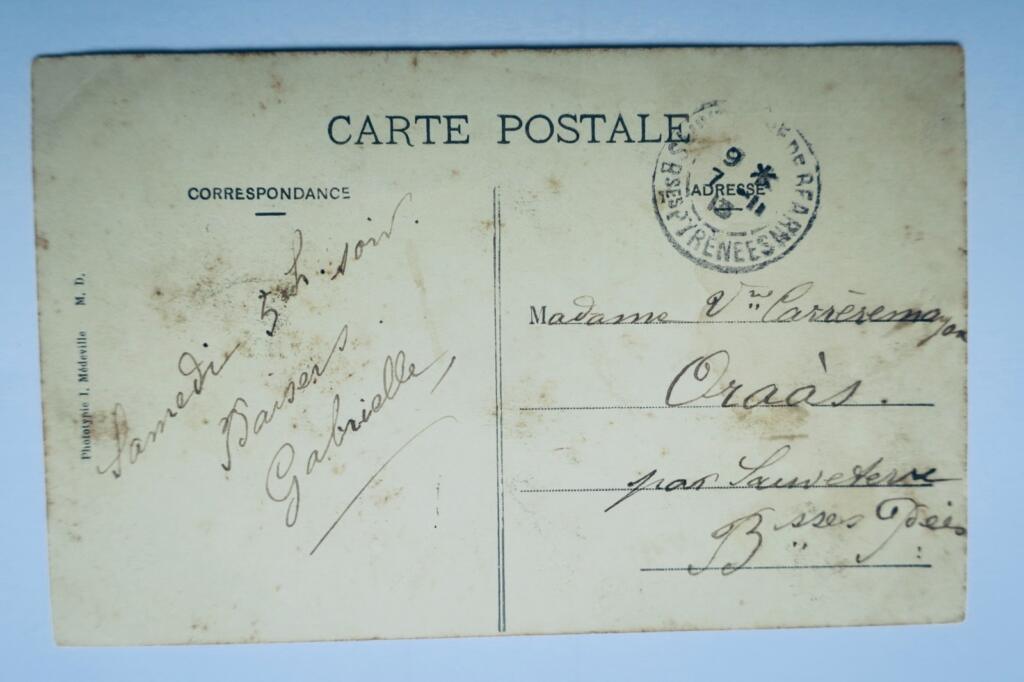 CARTE POSTALE
CORRESPONDANCE
ADRESSE
Samedi 5h. soir.
Baisers
Gabrielle
Madame Vve Carrèremayou
Oraàs.
par Sauveterre
Bsses Pées
DE BEARN
BSES PYRENEES
9 *
7 - 11
13
Phototypie I. Médeville M. D.